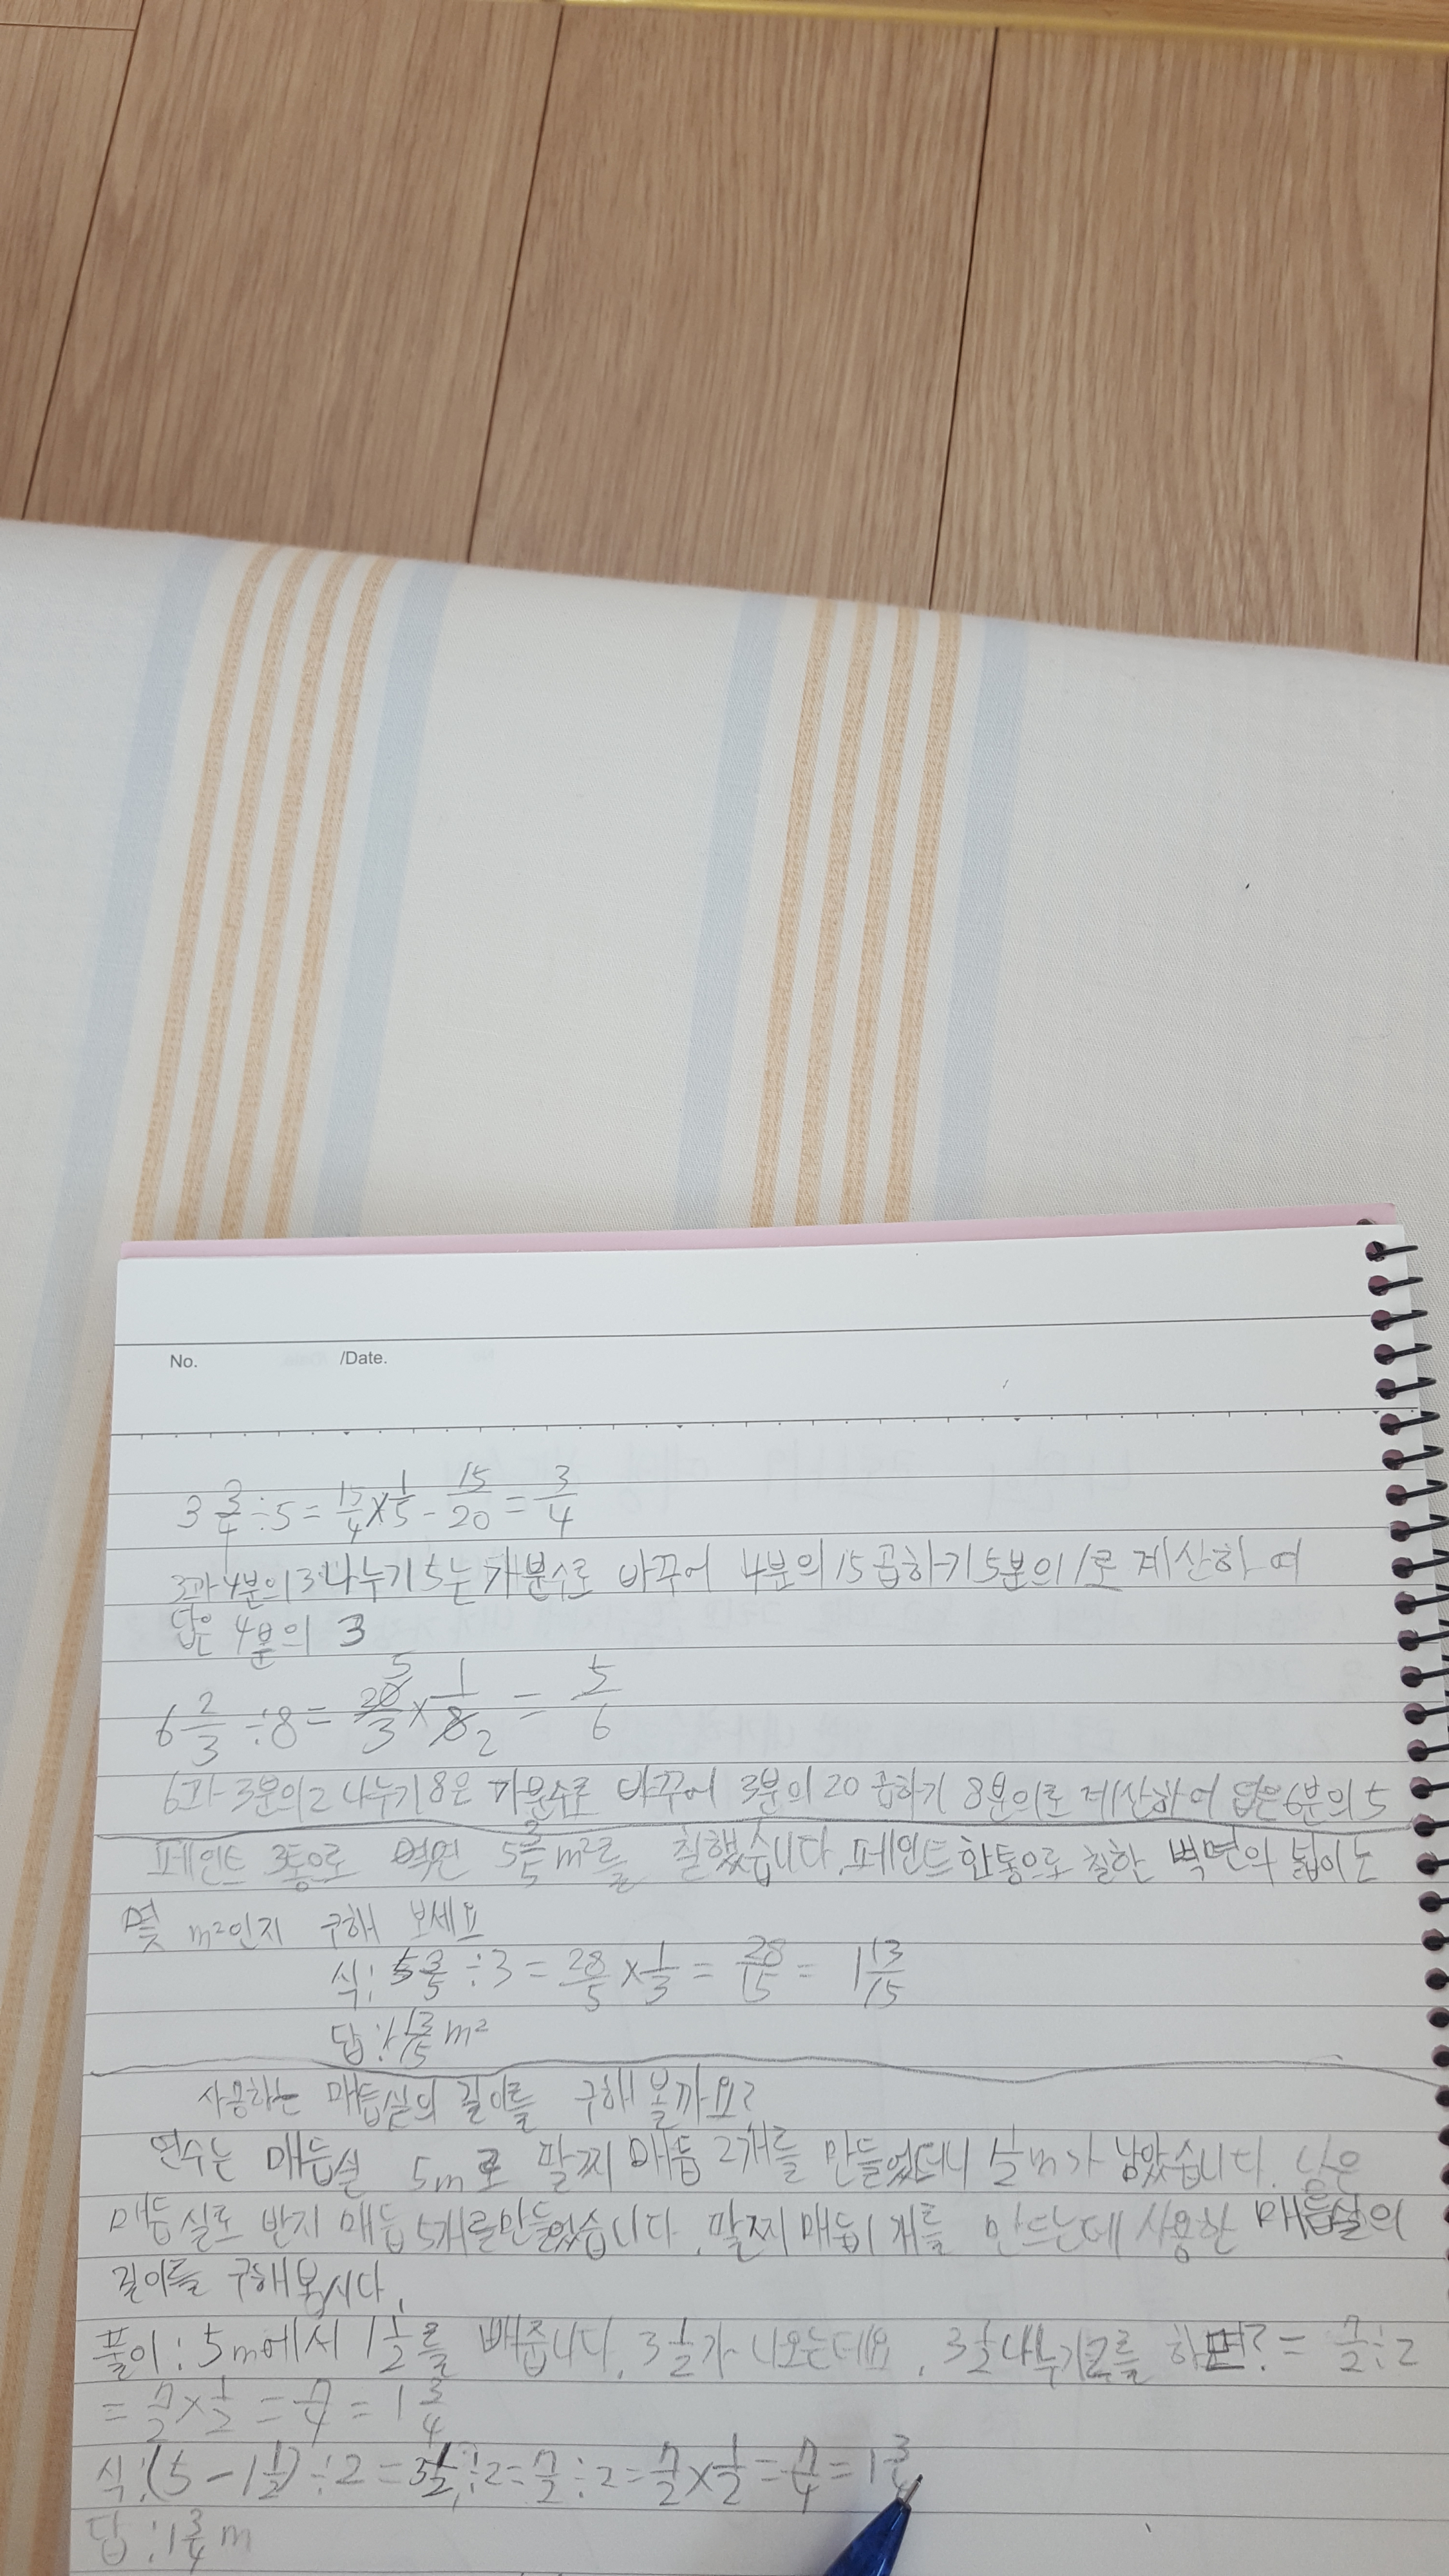 No. /Date.
3 3/4 ÷5 = 15/4 × 1/5 - 15/20 = 3/4
3과 4분의 3 나누기 5는 가분수로 바꾸어 4분의 15 곱하기 5분의 1로 계산하여
답은 4분의 3
6 2/3 ÷8 = 20/3 × 1/8 = 5/6 5 2
6과 3분의 2 나누기 8은 가분수로 바꾸어 3분의 20 곱하기 8분의로 계산하여 답은 6분의 5
페인트 3통으로 벽면 5 3/5 m²를 칠했습니다. 페인트 한통으로 칠한 벽면의 넓이는
몇 m²인지 구해 보세요
식: 5 3/5 ÷3 = 28/5 × 1/3 = 28/15 = 1 13/15
답: 1 13/15 m²
사용하는 매듭실의 길이를 구해 볼까요?
연수는 매듭실 5m로 팔찌 매듭 2개를 만들었더니 m가 남았습니다. 남은
매듭실로 반지 매듭 5개를 만들었습니다. 팔찌 매듭 1개를 만드는데 사용한 매듭실의
길이를 구해봅시다.
풀이: 5m에서 1 1/2를 빼줍니다. 3 1/2가 나오는데요. 3 1/2 나누기 2를 하면? = 7/2 ÷2
= 7/2 × 1/2 = 7/4 = 1 3/4
식: (5 - 1 1/2) ÷2 = 3 1/2 ÷2 = 7/2 ÷2 = 7/2 × 1/2 = 7/4 = 1 3/4
답: 1 3/4 m